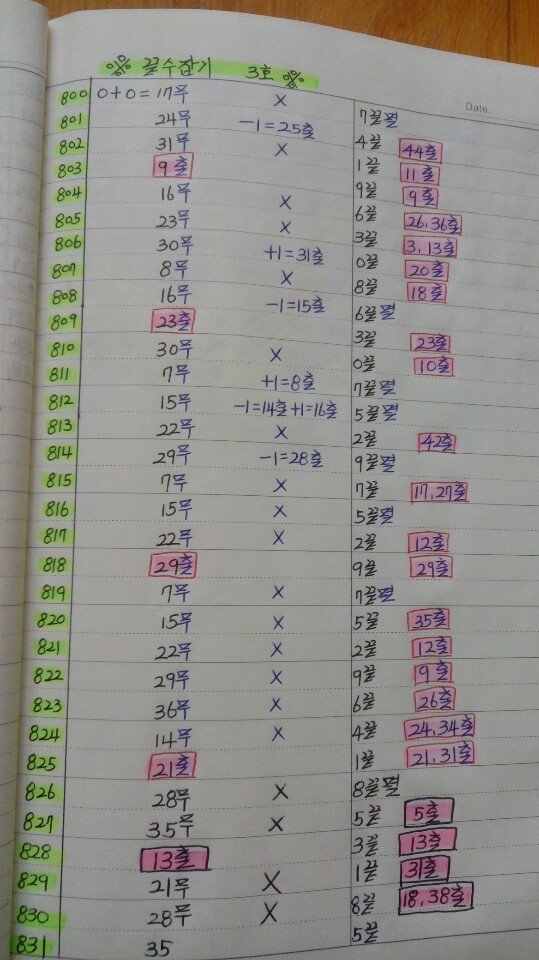 % 끝수잡기 3호 %
Date.
800 0+0=17무 X 7끝멸
801 24무 -1=25출 4끝 44출
802 31무 X 1끝 11출
803 9출 9끝 9출
804 16무 X 6끝 26.36출
805 23무 X 3끝 3.13출
806 30무 +1=31출 0끝 20출
807 8무 X 8끝 18출
808 16무 -1=15출 6끝멸
809 23출 3끝 23출
810 30무 X 0끝 10출
811 7무 +1=8출 7끝멸
812 15무 -1=14출+1=16출 5끝멸
813 22무 X 2끝 42출
814 29무 -1=28출 9끝멸
815 7무 X 7끝 17.27출
816 15무 X 5끝멸
817 22무 X 2끝 12출
818 29출 9끝 29출
819 7무 X 7끝멸
820 15무 X 5끝 35출
821 22무 X 2끝 12출
822 29무 X 9끝 9출
823 36무 X 6끝 26출
824 14무 X 4끝 24.34출
825 21출 1끝 21.31출
826 28무 X 8끝멸
827 35무 X 5끝 5출
828 13출 3끝 13출
829 21무 X 1끝 31출
830 28무 X 8끝 18.38출
831 35 5끝